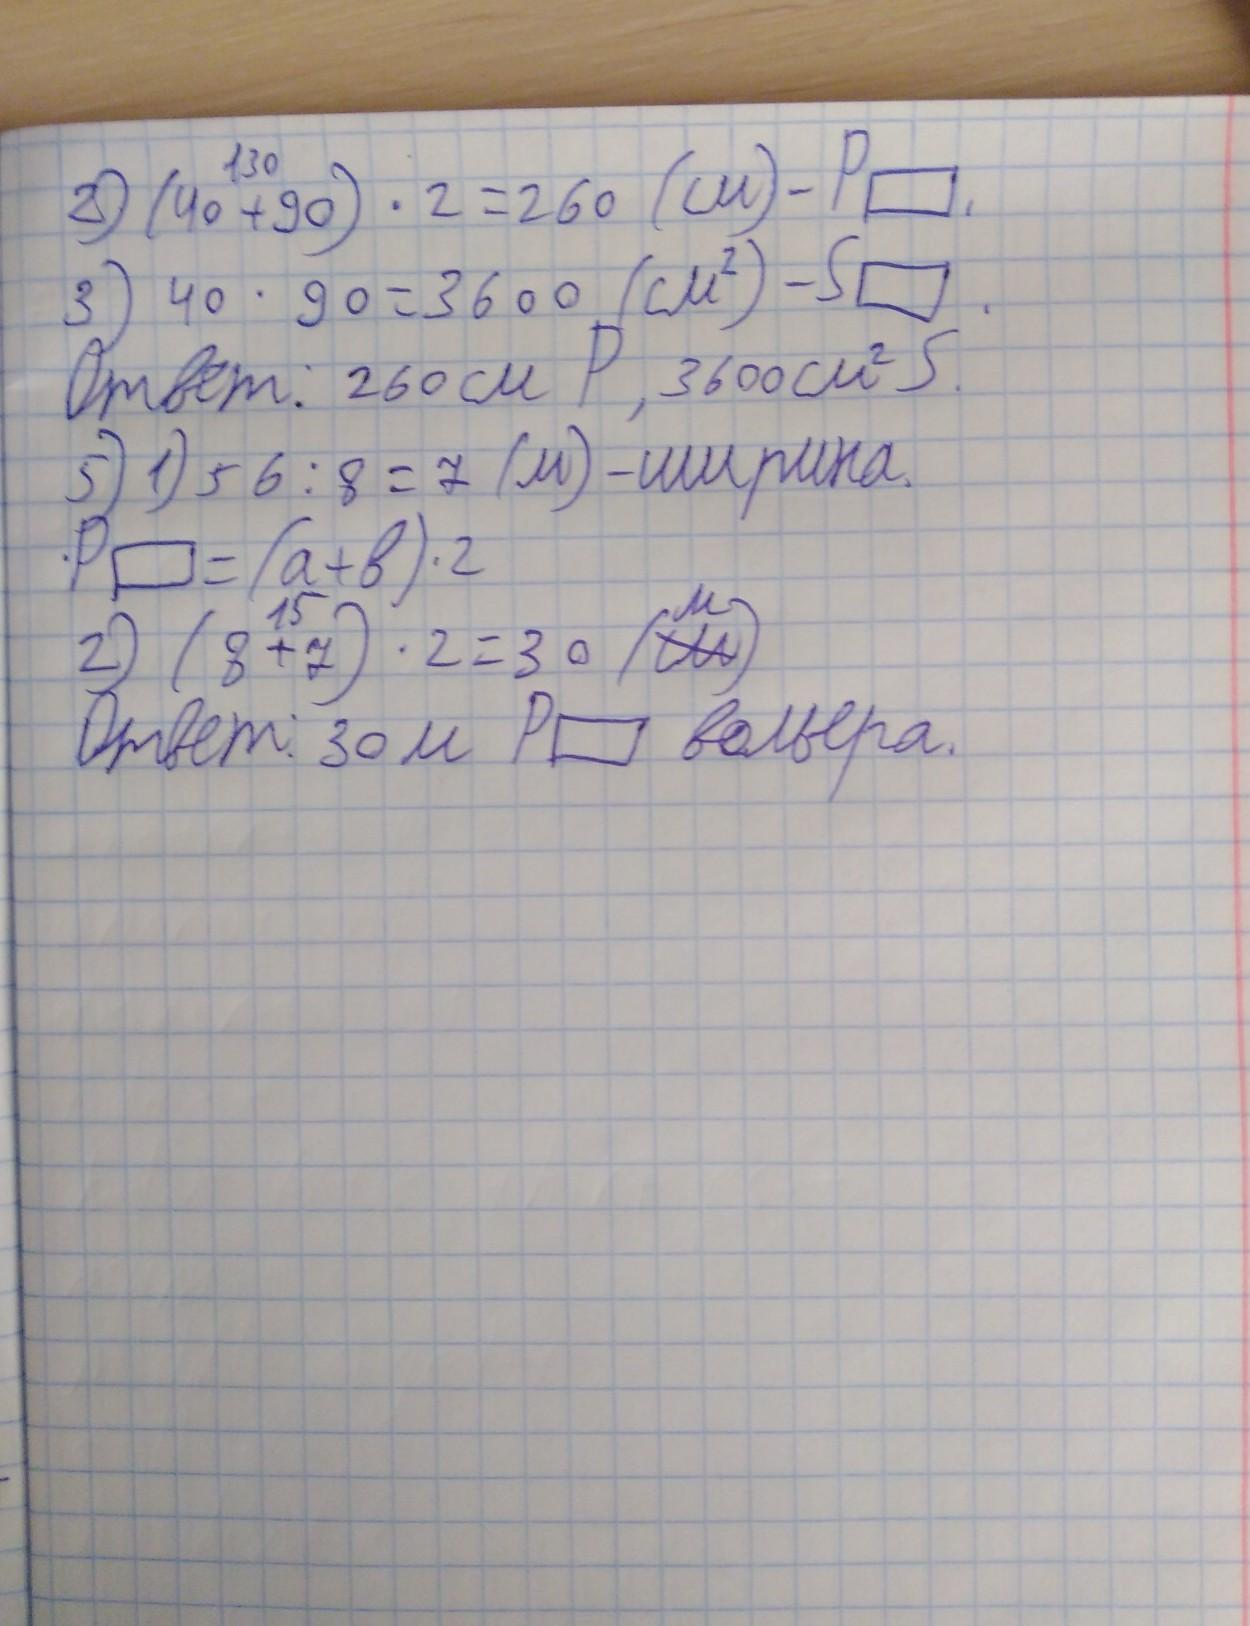 2) (40+90) · 2=260 (см)-P▭.
130
3) 40 · 90=3600 (см²)-S▭.
Ответ: 260см P, 3600см² S.
5) 1) 56:8=7 (м)-ширина.
P▭=(a+b)·2
15
2) (8+7) · 2=30 (м)
Ответ: 30м P▭ вольера.